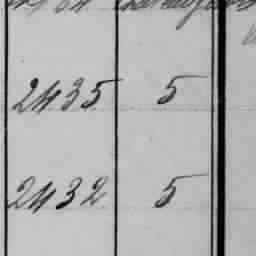 2435 5
2432 5